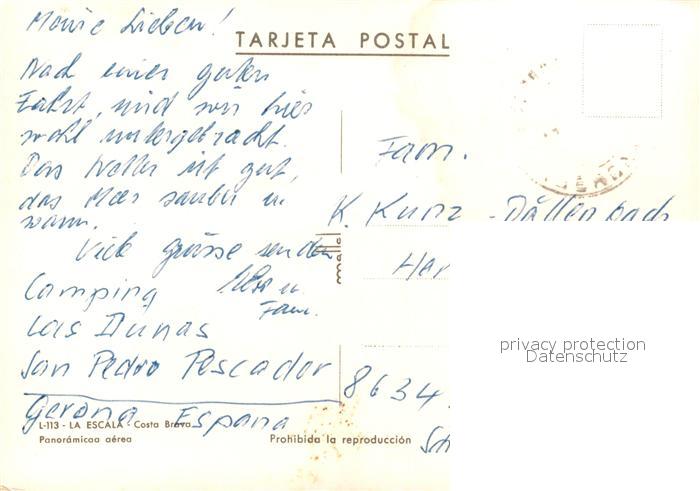 TARJETA POSTAL
Meine Lieben!
Nach einer guten
Fahrt, sind wir hier
wohl untergebracht.
Das Wetter ist gut,
das Meer sauber u.
warm.
Viele Grüsse senden
u.
Fam.
Camping
Las Dunas
San Pedro Pescador
Gerona España
Fam.
K. Kunz - Dättenbach
8634
privacy protection
Datenschutz
L-113 - LA ESCALA - Costa Brava
Panorámicaa aérea
Prohibida la reproducción